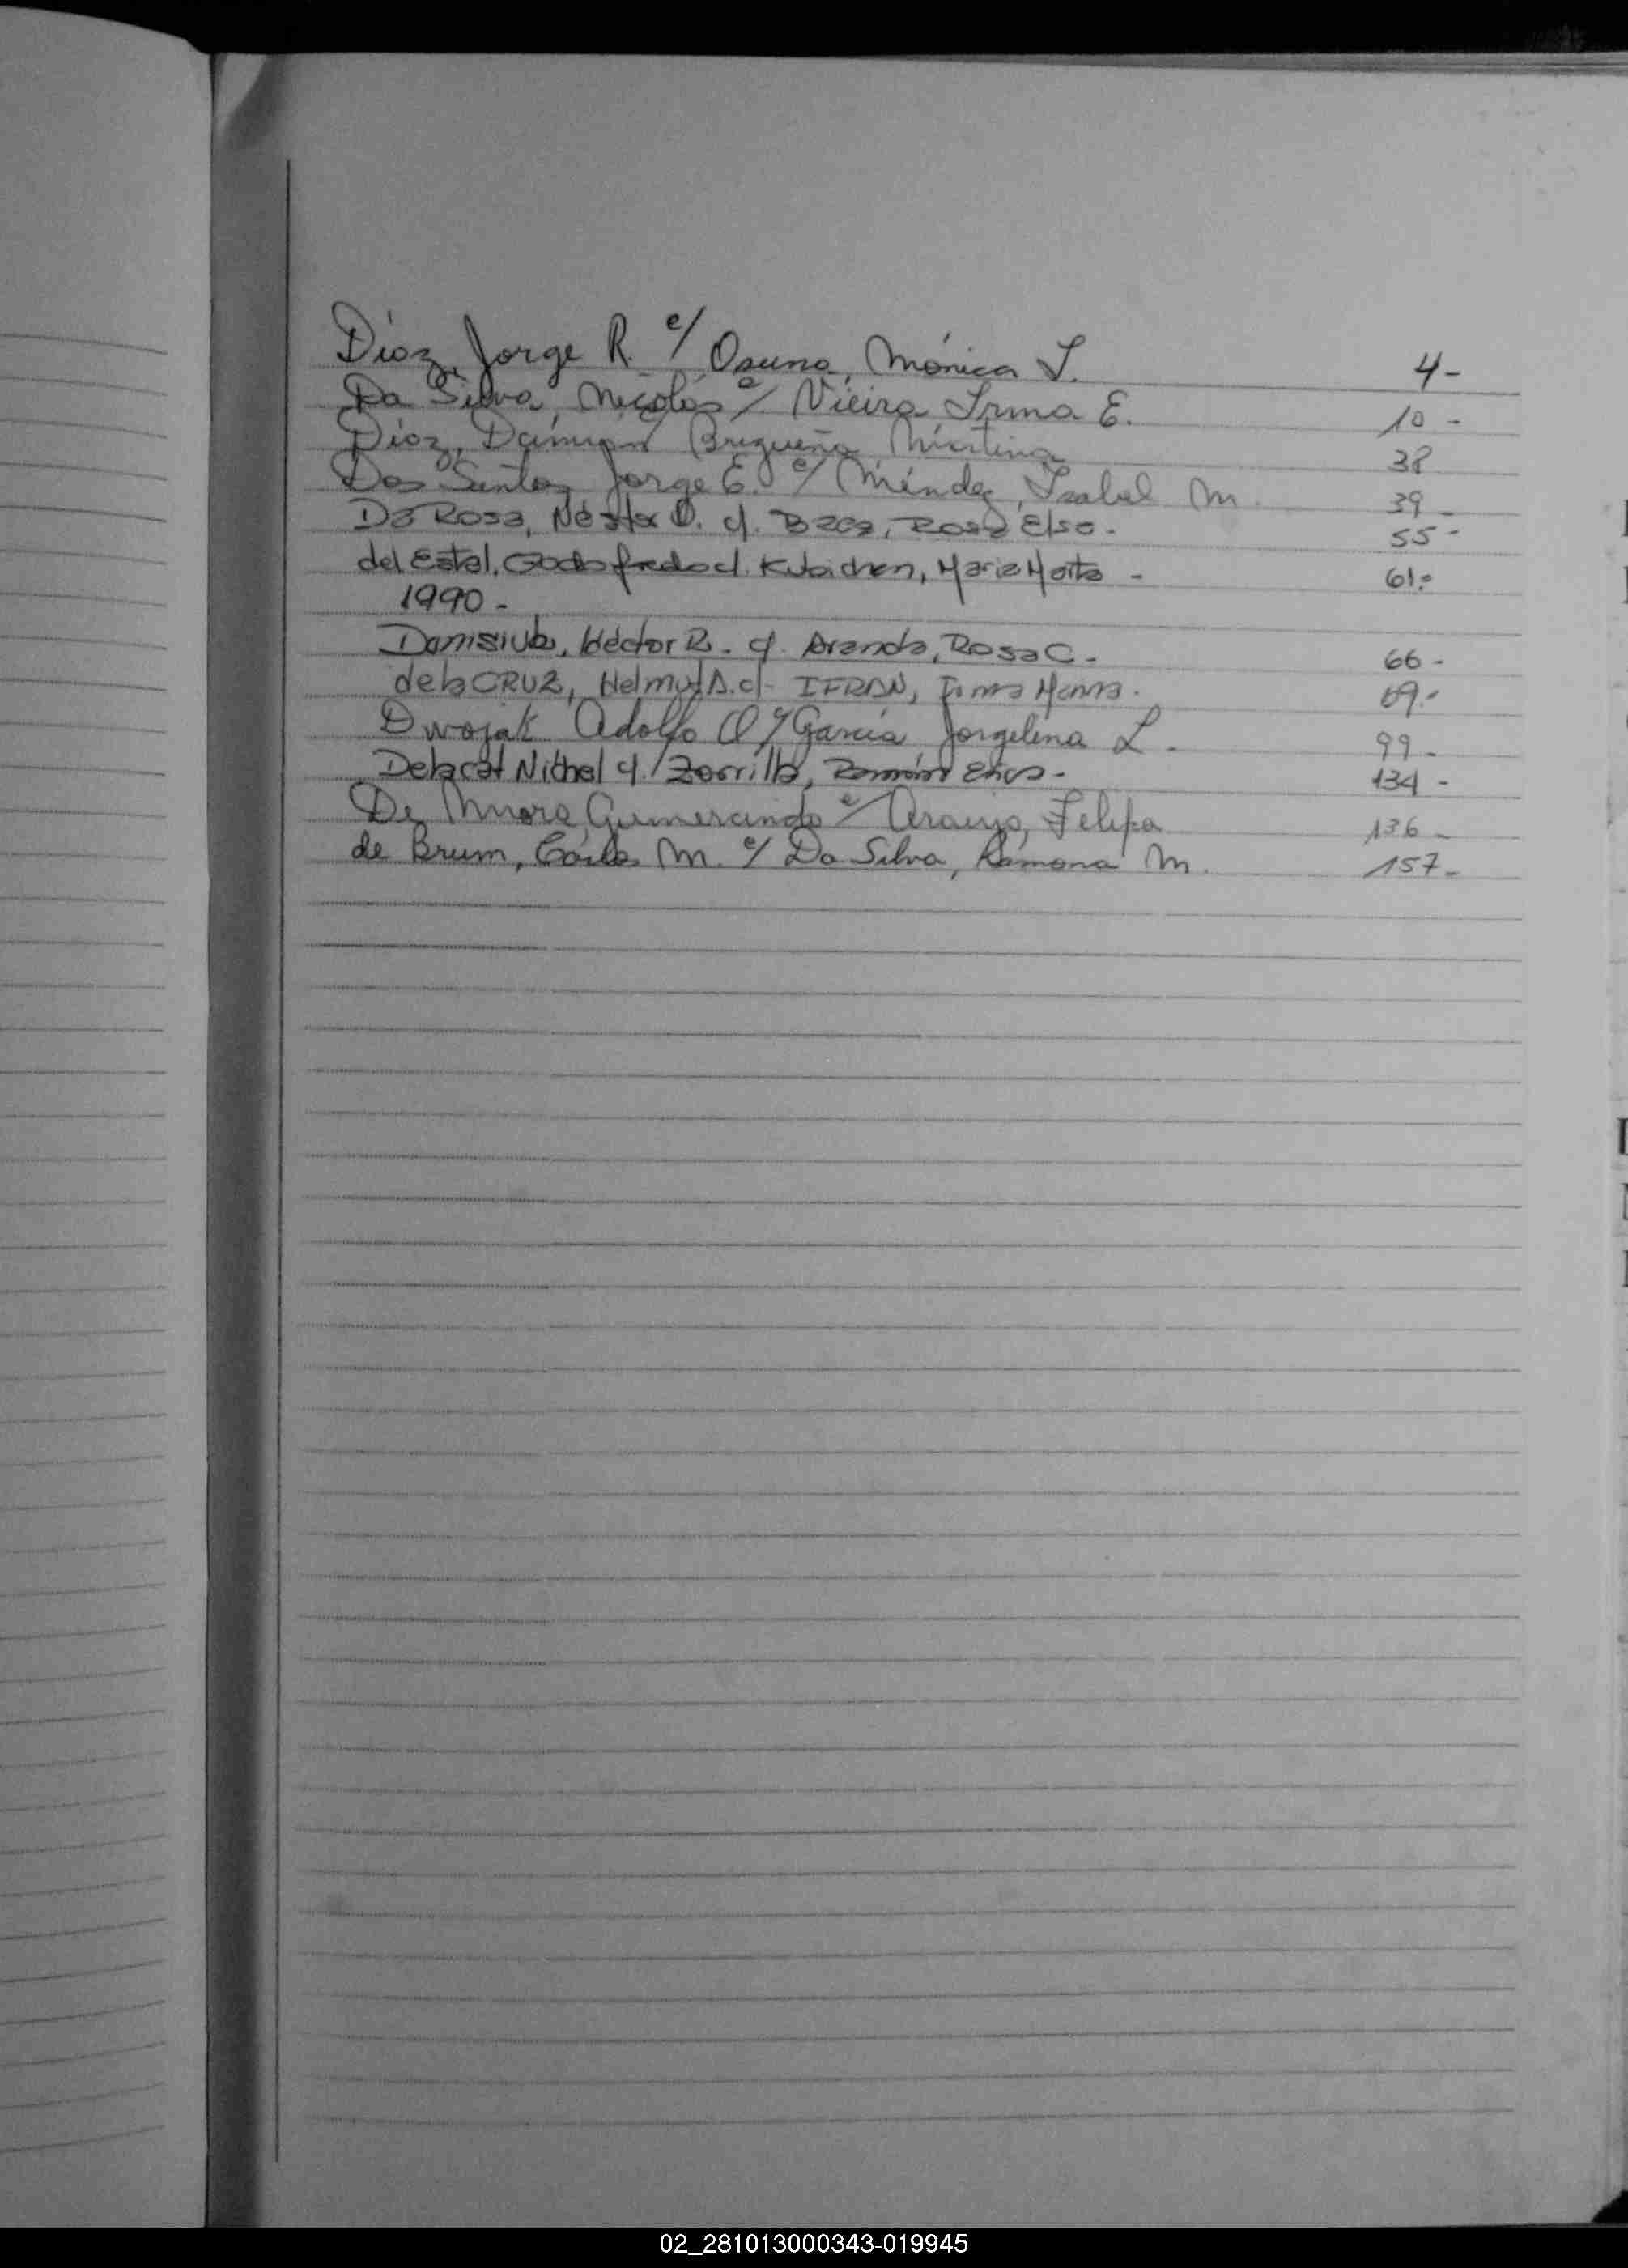 Díaz, Jorge R. c/ Osuna, Mónica S. 4-
Da Silva, Nicolás c/ Vieira Irma E. 10-
Díaz, Damian c/ Brizueña Martina 38
Dos Santos, Jorge E. c/ Méndez, Isabel M. 39-
Da Rosa, Néstor O. c/. Baez, Rosa Elsa. 55-
del Estal, Godofredo c/. María Marta - 61.-
1990-
Héctor R. - c/. Aranda, Rosa C. - 66-
de la CRUZ, c/- IFRAN, 69.-
Dwojak Adolfo O c/ García Jorgelina L. 99-
c/. Zorrilla, Ramón 134-
De Mora, Gumercindo c/ Araujo, Felipa 136-
de Brum, Carlos M. c/ Da Silva, Ramona M. 157-
02_281013000343-019945